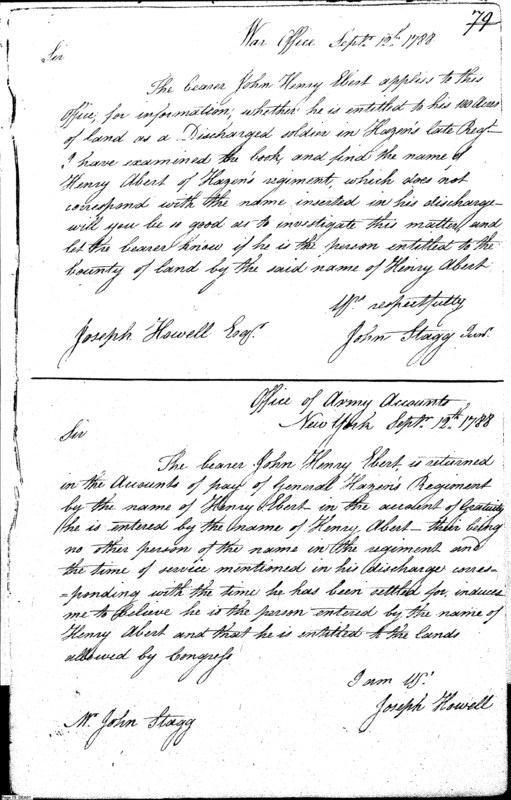 79
War Office Septr. 12th. 1788
Sir
The bearer John Henry Ebert applies to this
office, for information, whether he is entitled to his 100 Acres
of land as a Discharged soldier in Hazen's late Regt.
I have examined the book, and find the name of
Henry Abert of Hazen's regiment, which does not
correspond with the name inserted in his discharge
will you be so good as to investigate this matter, and
let the bearer know if he is the person entitled to the
bounty of land by the said name of Henry Abert
Yrs. respectfully
Joseph Howell Esqr. John Stagg Junr.
Office of Army Accounts
New York Septr. 12th. 1788
Sir
The bearer John Henry Ebert, is returned
in the Accounts of pay of General Hazen's Regiment
by the name of Henry Ebert in the account of Gratuity
he is entered by the name of Henry Abert - their being
no other person of the name in the regiment and
the time of service mentioned in his discharge corres=
=ponding with the time he has been settled for, induces
me to believe he is the person entered by the name of
Henry Abert and that he is entitled to the lands
allowed by Congress
I am Yrs.
Joseph Howell
Mr. John Stagg